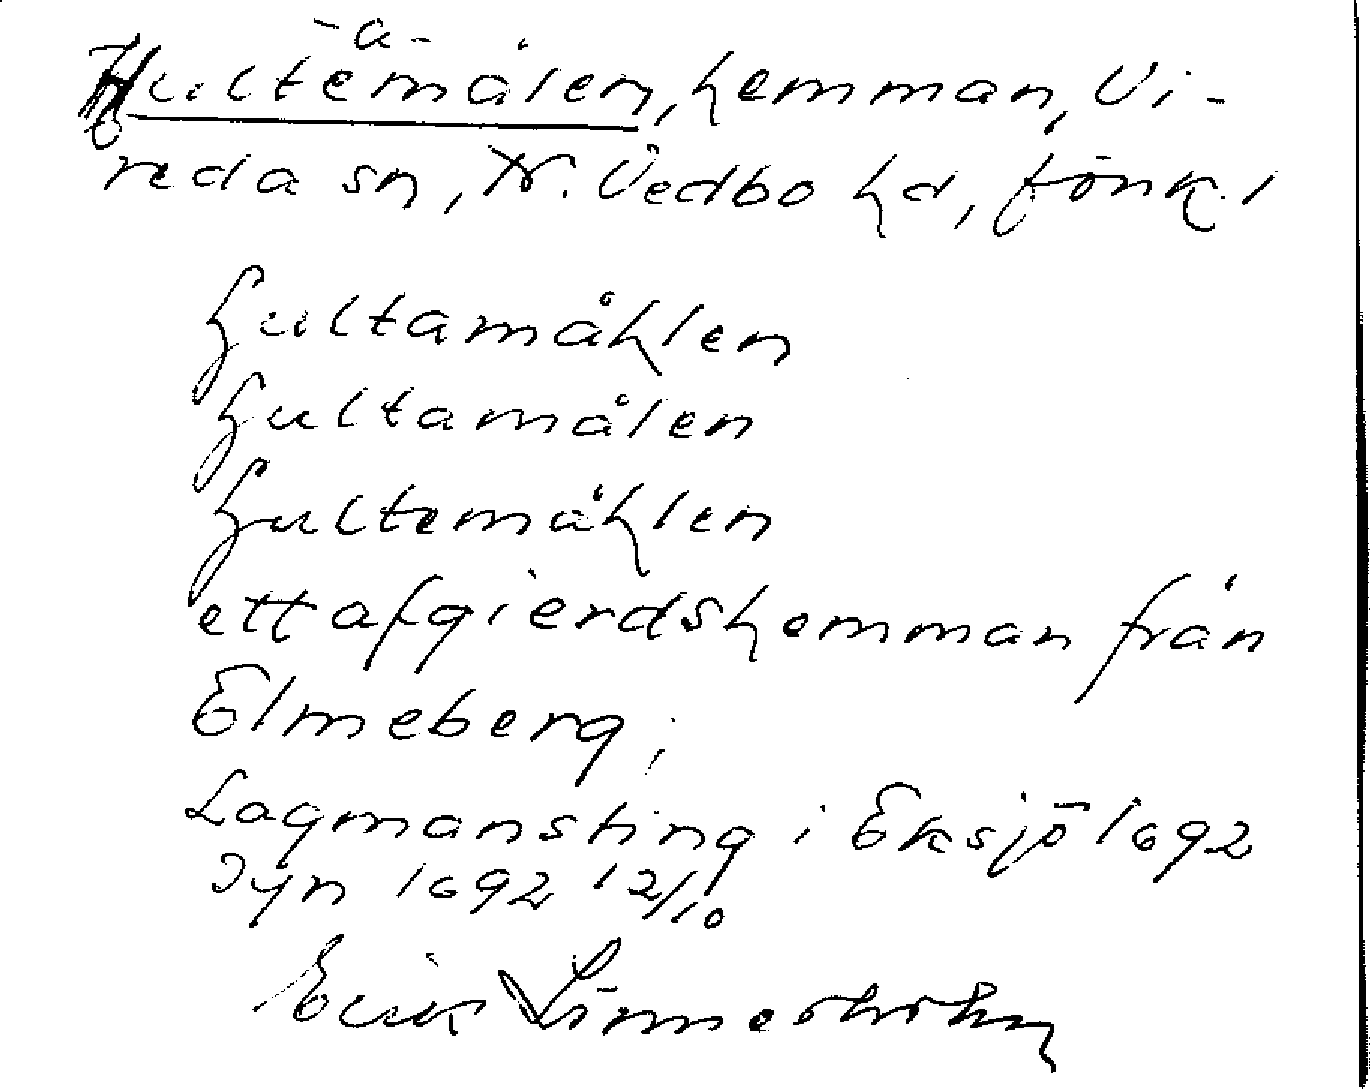 -a-
Hultemålen, hemman, Vi-
reda sn, N. Vedbo hd, Jönk. l
hultamåhlen
hultamålen
hultemåhlen
ett afgierdshemman från
Elmeberg;
Lagmansting i Eksjö 1692
Syn 1692 12/10
Erik